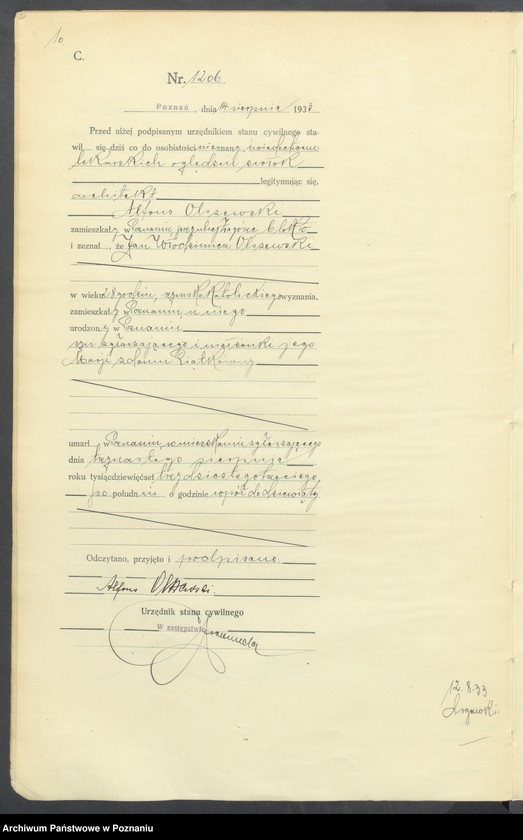 10
C.
Nr. 1206
Poznań, dnia 14 sierpnia 1933
Przed niżej podpisanym urzędnikiem stanu cywilnego sta-
wił się dziś co do osobistości nieznany,
lekarskich oględzin zwłok
legitymując się,
architekt
Alfons Olszewski
zamieszkały w Poznaniu, przy ulicy
i zeznał, że Jan Włodzimierz Olszewski
w wieku 28 godzin, rzymsko katolickiego wyznania,
zamieszkały w Poznaniu u niego
urodzony w Poznaniu
syn zgłaszającego i małżonki jego
Marji z domu
umarł w Poznaniu, w mieszkaniu zgłaszającego
dnia sierpnia
roku tysiącdziewięćset trzydziestego trzeciego,
po południu o godzinie wpół do dziewiątej
Odczytano, przyjęto i podpisano.
Alfons Olszewski.
Urzędnik stanu cywilnego
w zastępstwie
12.8.33
Archiwum Państwowe w Poznaniu